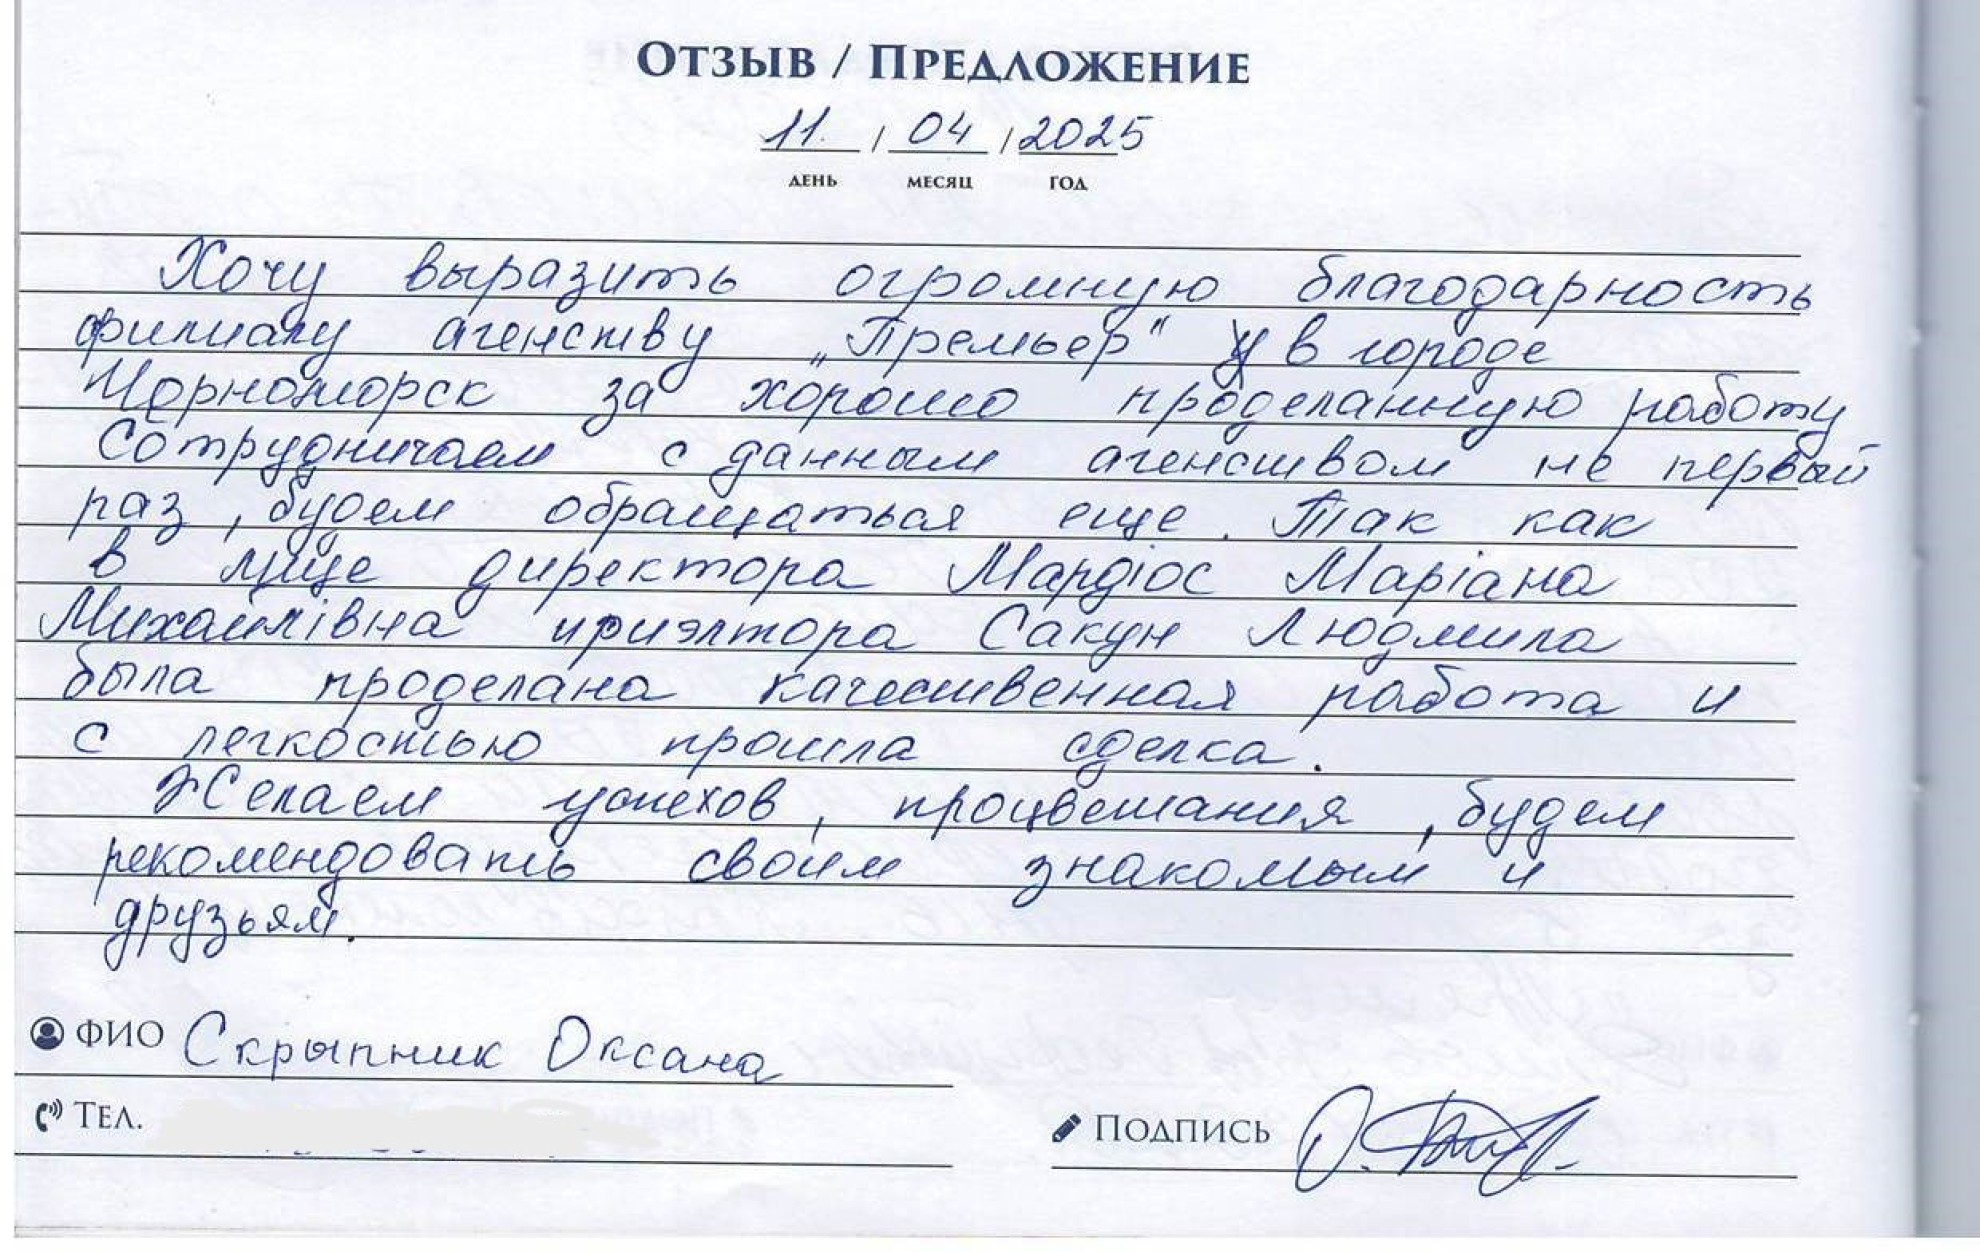 ОТЗЫВ / ПРЕДЛОЖЕНИЕ
11. / 04 / 2025
ДЕНЬ МЕСЯЦ ГОД
Хочу выразить огромную благодарность
филиалу агенству „Премьер" в городе
Черноморск за хорошо проделанную работу
Сотрудничаем с данным агенством не первый
раз, будем обращаться еще. Так как
в лице директора Мардіос Маріана
Михайлівна риэлтора Сакун Людмила
была проделана качественная работа и
с легкостью прошла сделка.
Желаем успехов, процветания, будем
рекомендовать своим знакомым и
друзьям.
ФИО Скрыпник Оксана
ТЕЛ.
ПОДПИСЬ